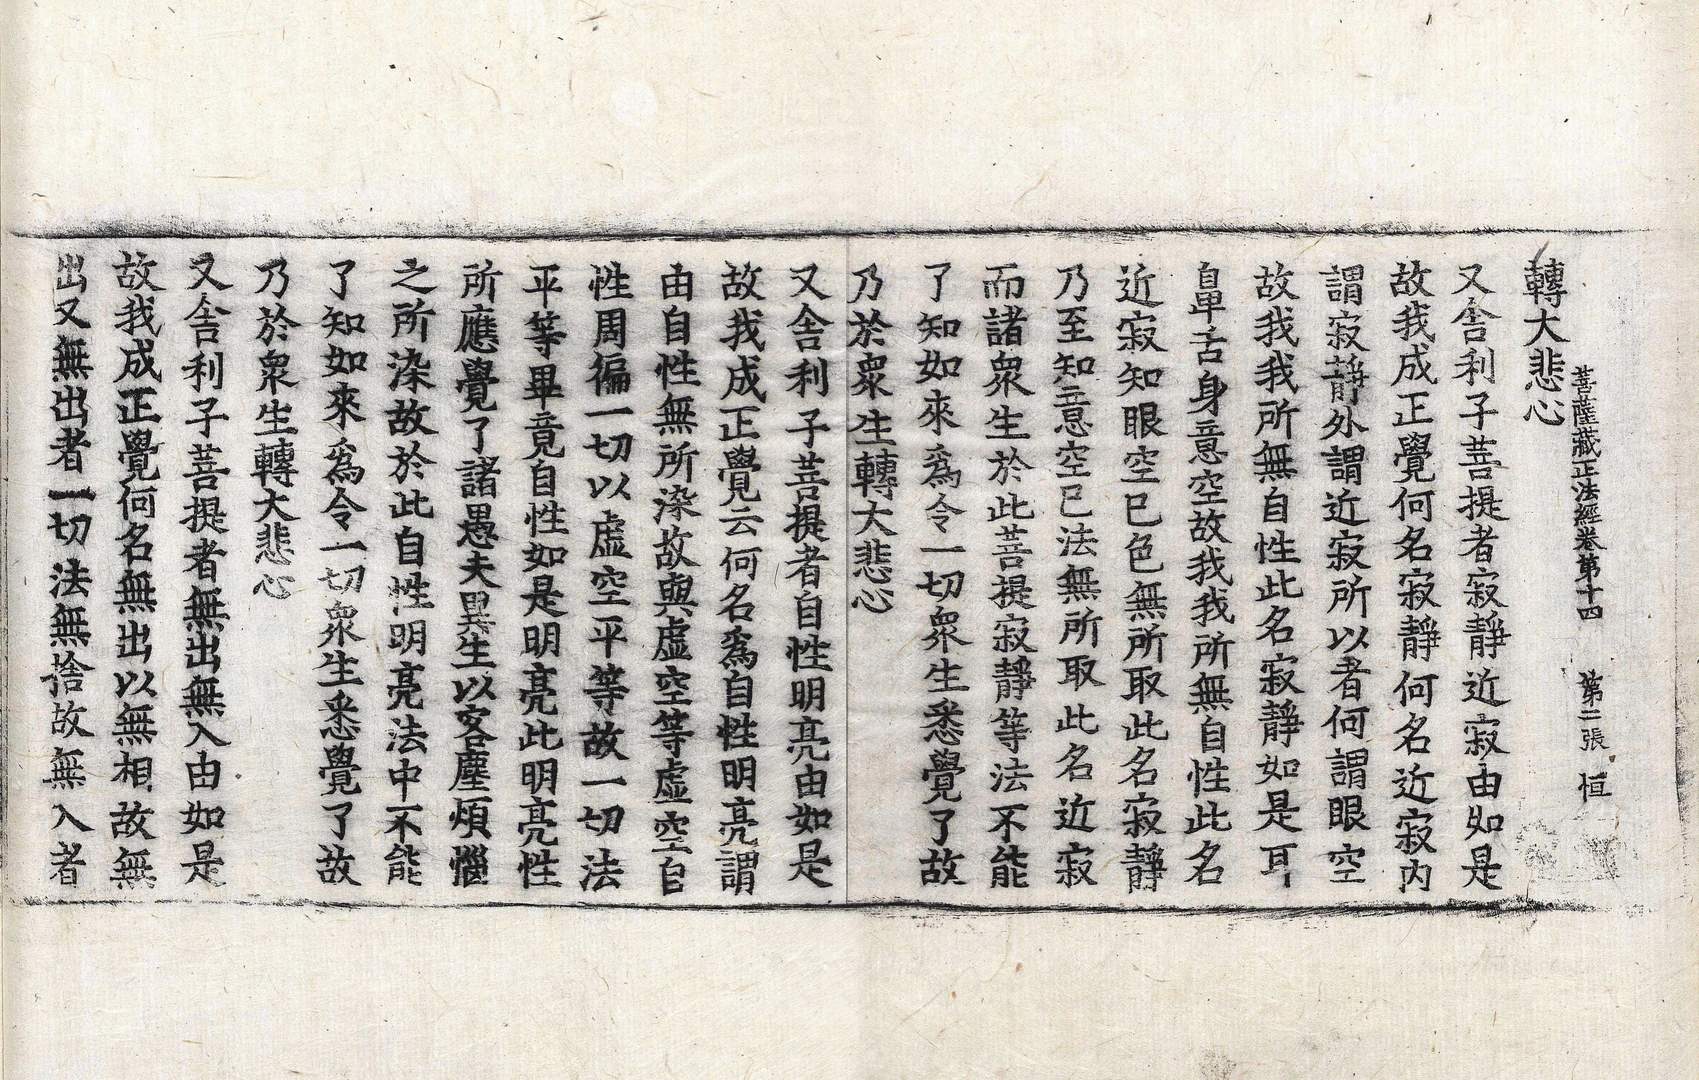 菩薩藏正法經卷第十四 第二張 恒
轉大悲心
又舍利子菩提者寂靜近寂由如是
故我成正覺何名寂靜何名近寂內
謂寂靜外謂近寂所以者何謂眼空
故我我所無自性此名寂靜如是耳
鼻舌身意空故我我所無自性此名
近寂知眼空已色無所取此名寂靜
乃至知意空已法無所取此名近寂
而諸衆生於此菩提寂靜等法不能
了知如來爲令一切衆生悉覺了故
乃於衆生轉大悲心
又舍利子菩提者自性明亮由如是
故我成正覺云何名爲自性明亮謂
由自性無所染故與虛空等虛空自
性周徧一切以虛空平等故一切法
平等畢竟自性如是明亮此明亮性
所應覺了諸愚夫異生以客塵煩惱
之所染故於此自性明亮法中不能
了知如來爲令一切衆生悉覺了故
乃於衆生轉大悲心
又舍利子菩提者無出無入由如是
故我成正覺何名無出以無相故無
出又無出者一切法無捨故無入者